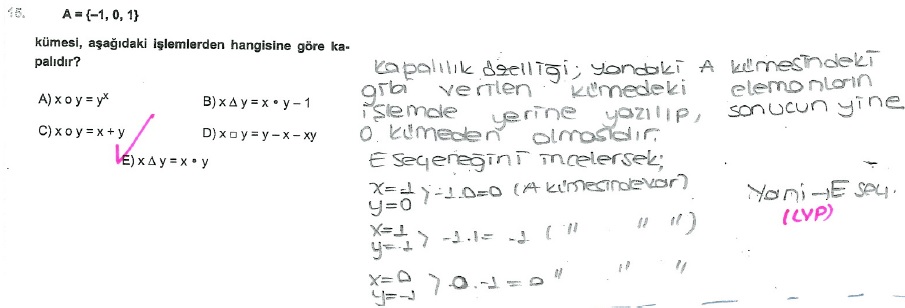 15. A = {–1, 0, 1}
kümesi, aşağıdaki işlemlerden hangisine göre ka-
palıdır?
A) x o y = yˣ B) x Δ y = x • y – 1
C) x o y = x + y D) x □ y = y – x – xy
E) x Δ y = x • y
Kapalılık özelliği; yandaki A kümesindeki
gibi verilen kümedeki elemanların
işlemde yerine yazılıp, sonucun yine
o kümeden olmasıdır.
E seçeneğini incelersek;
x=-1
y=0 > -1.0=0 (A kümesinde var)
x=1
y=-1 > -1.1= -1 ( " " ")
x=0
y=-1 > 0.-1=0 " " "
Yani →E seç.
(LYP)